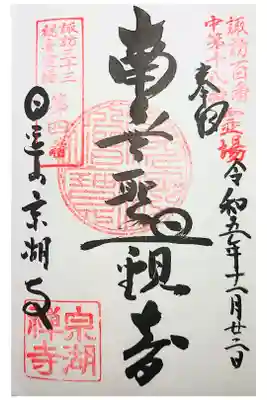 諏訪百番霊場
中第十八
奉拝
令和五年十一月廿二日
南無聖観音
諏訪三十三
観音霊場
第四番
山泉湖寺
泉湖
禅寺